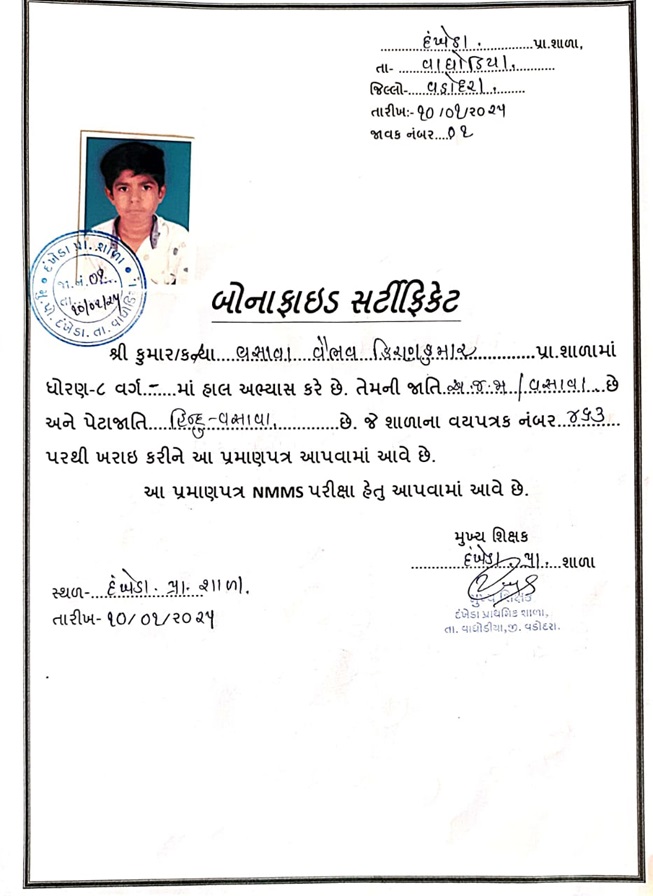 દંખેડા. પ્રા.શાળા,
તા- વાઘોડિયા.
જિલ્લો- વડોદરા.
તારીખ:- ૧૦/૦૧/૨૦૨૫
જાવક નંબર....૦૧
દંખેડા પ્રા. શાળા
જા.નં. ૦૧
તા. ૧૦/૦૧/૨૫
મુ.પો. દંખેડા. તા. વાઘોડિયા
બોનાફાઇડ સર્ટીફિકેટ
શ્રી કુમાર/કન્યા વસાવા વૈભવ કિરણકુમાર પ્રા.શાળામાં
ધોરણ-૮ વર્ગ.-.....માં હાલ અભ્યાસ કરે છે. તેમની જાતિ અ.જ.જા / વસાવા છે
અને પેટાજાતિ હિન્દુ-વસાવા. છે. જે શાળાના વયપત્રક નંબર ૪૬૩
પરથી ખરાઇ કરીને આ પ્રમાણપત્ર આપવામાં આવે છે.
આ પ્રમાણપત્ર NMMS પરીક્ષા હેતુ આપવામાં આવે છે.
મુખ્ય શિક્ષક
દંખેડા. પ્રા. શાળા
સ્થળ- દંખેડા. પ્રા. શાળા.
તારીખ- ૧૦/૦૧/૨૦૨૫
મુખ્ય શિક્ષક
દંખેડા પ્રાથમિક શાળા,
તા. વાઘોડીયા,જી. વડોદરા.